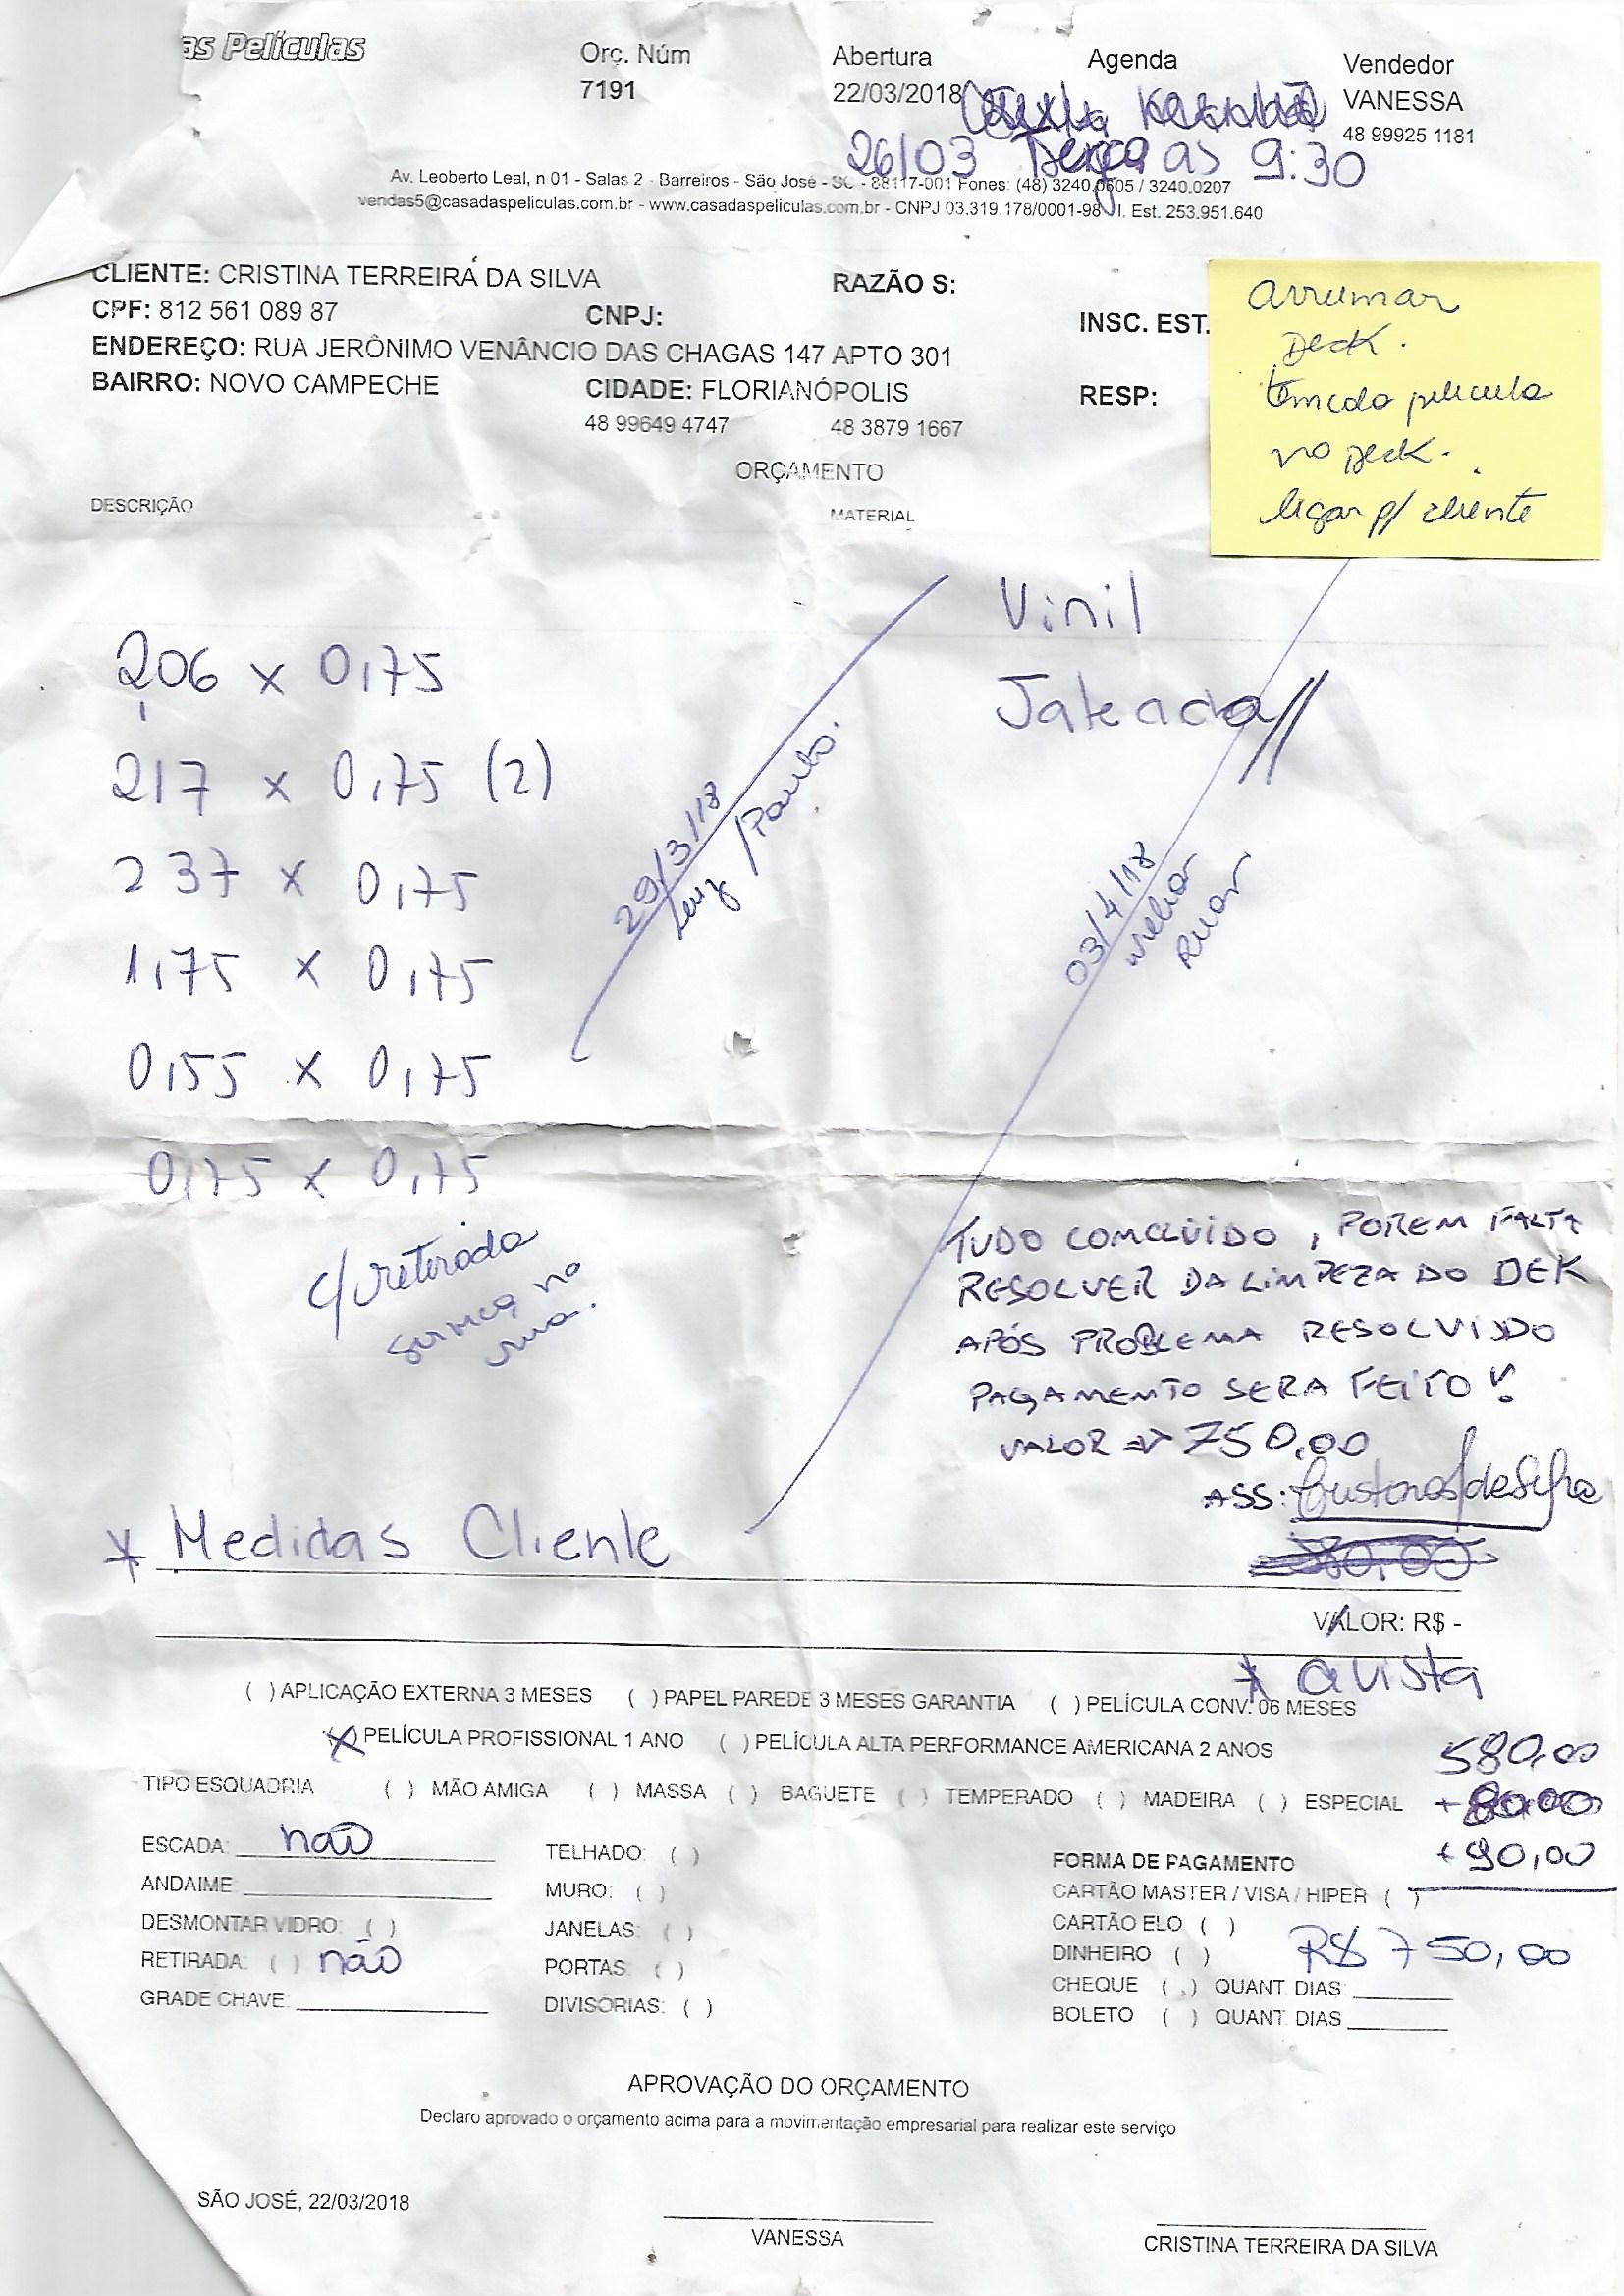 as Películas
Orç. Núm
7191
Abertura
22/03/2018
Agenda
Vendedor
VANESSA
48 99925 1181
26/03 Terça as 9:30
Av. Leoberto Leal, n 01 - Salas 2 - Barreiros - São José - SC - 88117-001 Fones: (48) 3240.0605 / 3240.0207
vendas5@casadaspeliculas.com.br - www.casadaspeliculas.com.br - CNPJ 03.319.178/0001-98 I. Est. 253.951.640
CLIENTE: CRISTINA TERREIRA DA SILVA
RAZÃO S:
CPF: 812 561 089 87
CNPJ:
INSC. EST.
ENDEREÇO: RUA JERÔNIMO VENÂNCIO DAS CHAGAS 147 APTO 301
BAIRRO: NOVO CAMPECHE
CIDADE: FLORIANÓPOLIS
RESP:
48 99649 4747
48 3879 1667
arrumar
Deck.
película
no Deck.
ligar p/ cliente
ORÇAMENTO
DESCRIÇÃO
MATERIAL
Vinil
Jateado
2,06 x 0,75
217 x 0,75 (2)
237 x 0,75
1,75 x 0,75
0,55 x 0,75
0,75 x 0,75
29/3/18
Luiz / Paulo.
03/4/18
c/ retirada
TUDO CONCLUIDO, POREM FALTA
RESOLVER DA LIMPEZA DO DEK
APÓS PROBLEMA RESOLVIDO
PAGAMENTO SERA FEITO!
VALOR 750,00
ASS:
* Medidas Cliente
VALOR: R$ -
* avista
( ) APLICAÇÃO EXTERNA 3 MESES ( ) PAPEL PAREDE 3 MESES GARANTIA ( ) PELÍCULA CONV. 06 MESES
(X) PELÍCULA PROFISSIONAL 1 ANO ( ) PELÍCULA ALTA PERFORMANCE AMERICANA 2 ANOS
580,00
TIPO ESQUADRIA ( ) MÃO AMIGA ( ) MASSA ( ) BAGUETE ( ) TEMPERADO ( ) MADEIRA ( ) ESPECIAL
+ 80,00
+ 90,00
R$ 750,00
ESCADA: não
ANDAIME
DESMONTAR VIDRO: ( )
RETIRADA: ( ) não
GRADE CHAVE:
TELHADO: ( )
MURO: ( )
JANELAS: ( )
PORTAS: ( )
DIVISÓRIAS: ( )
FORMA DE PAGAMENTO
CARTÃO MASTER / VISA / HIPER ( )
CARTÃO ELO ( )
DINHEIRO ( )
CHEQUE ( ) QUANT. DIAS:
BOLETO ( ) QUANT. DIAS
APROVAÇÃO DO ORÇAMENTO
Declaro aprovado o orçamento acima para a movimentação empresarial para realizar este serviço
SÃO JOSÉ, 22/03/2018
VANESSA
CRISTINA TERREIRA DA SILVA